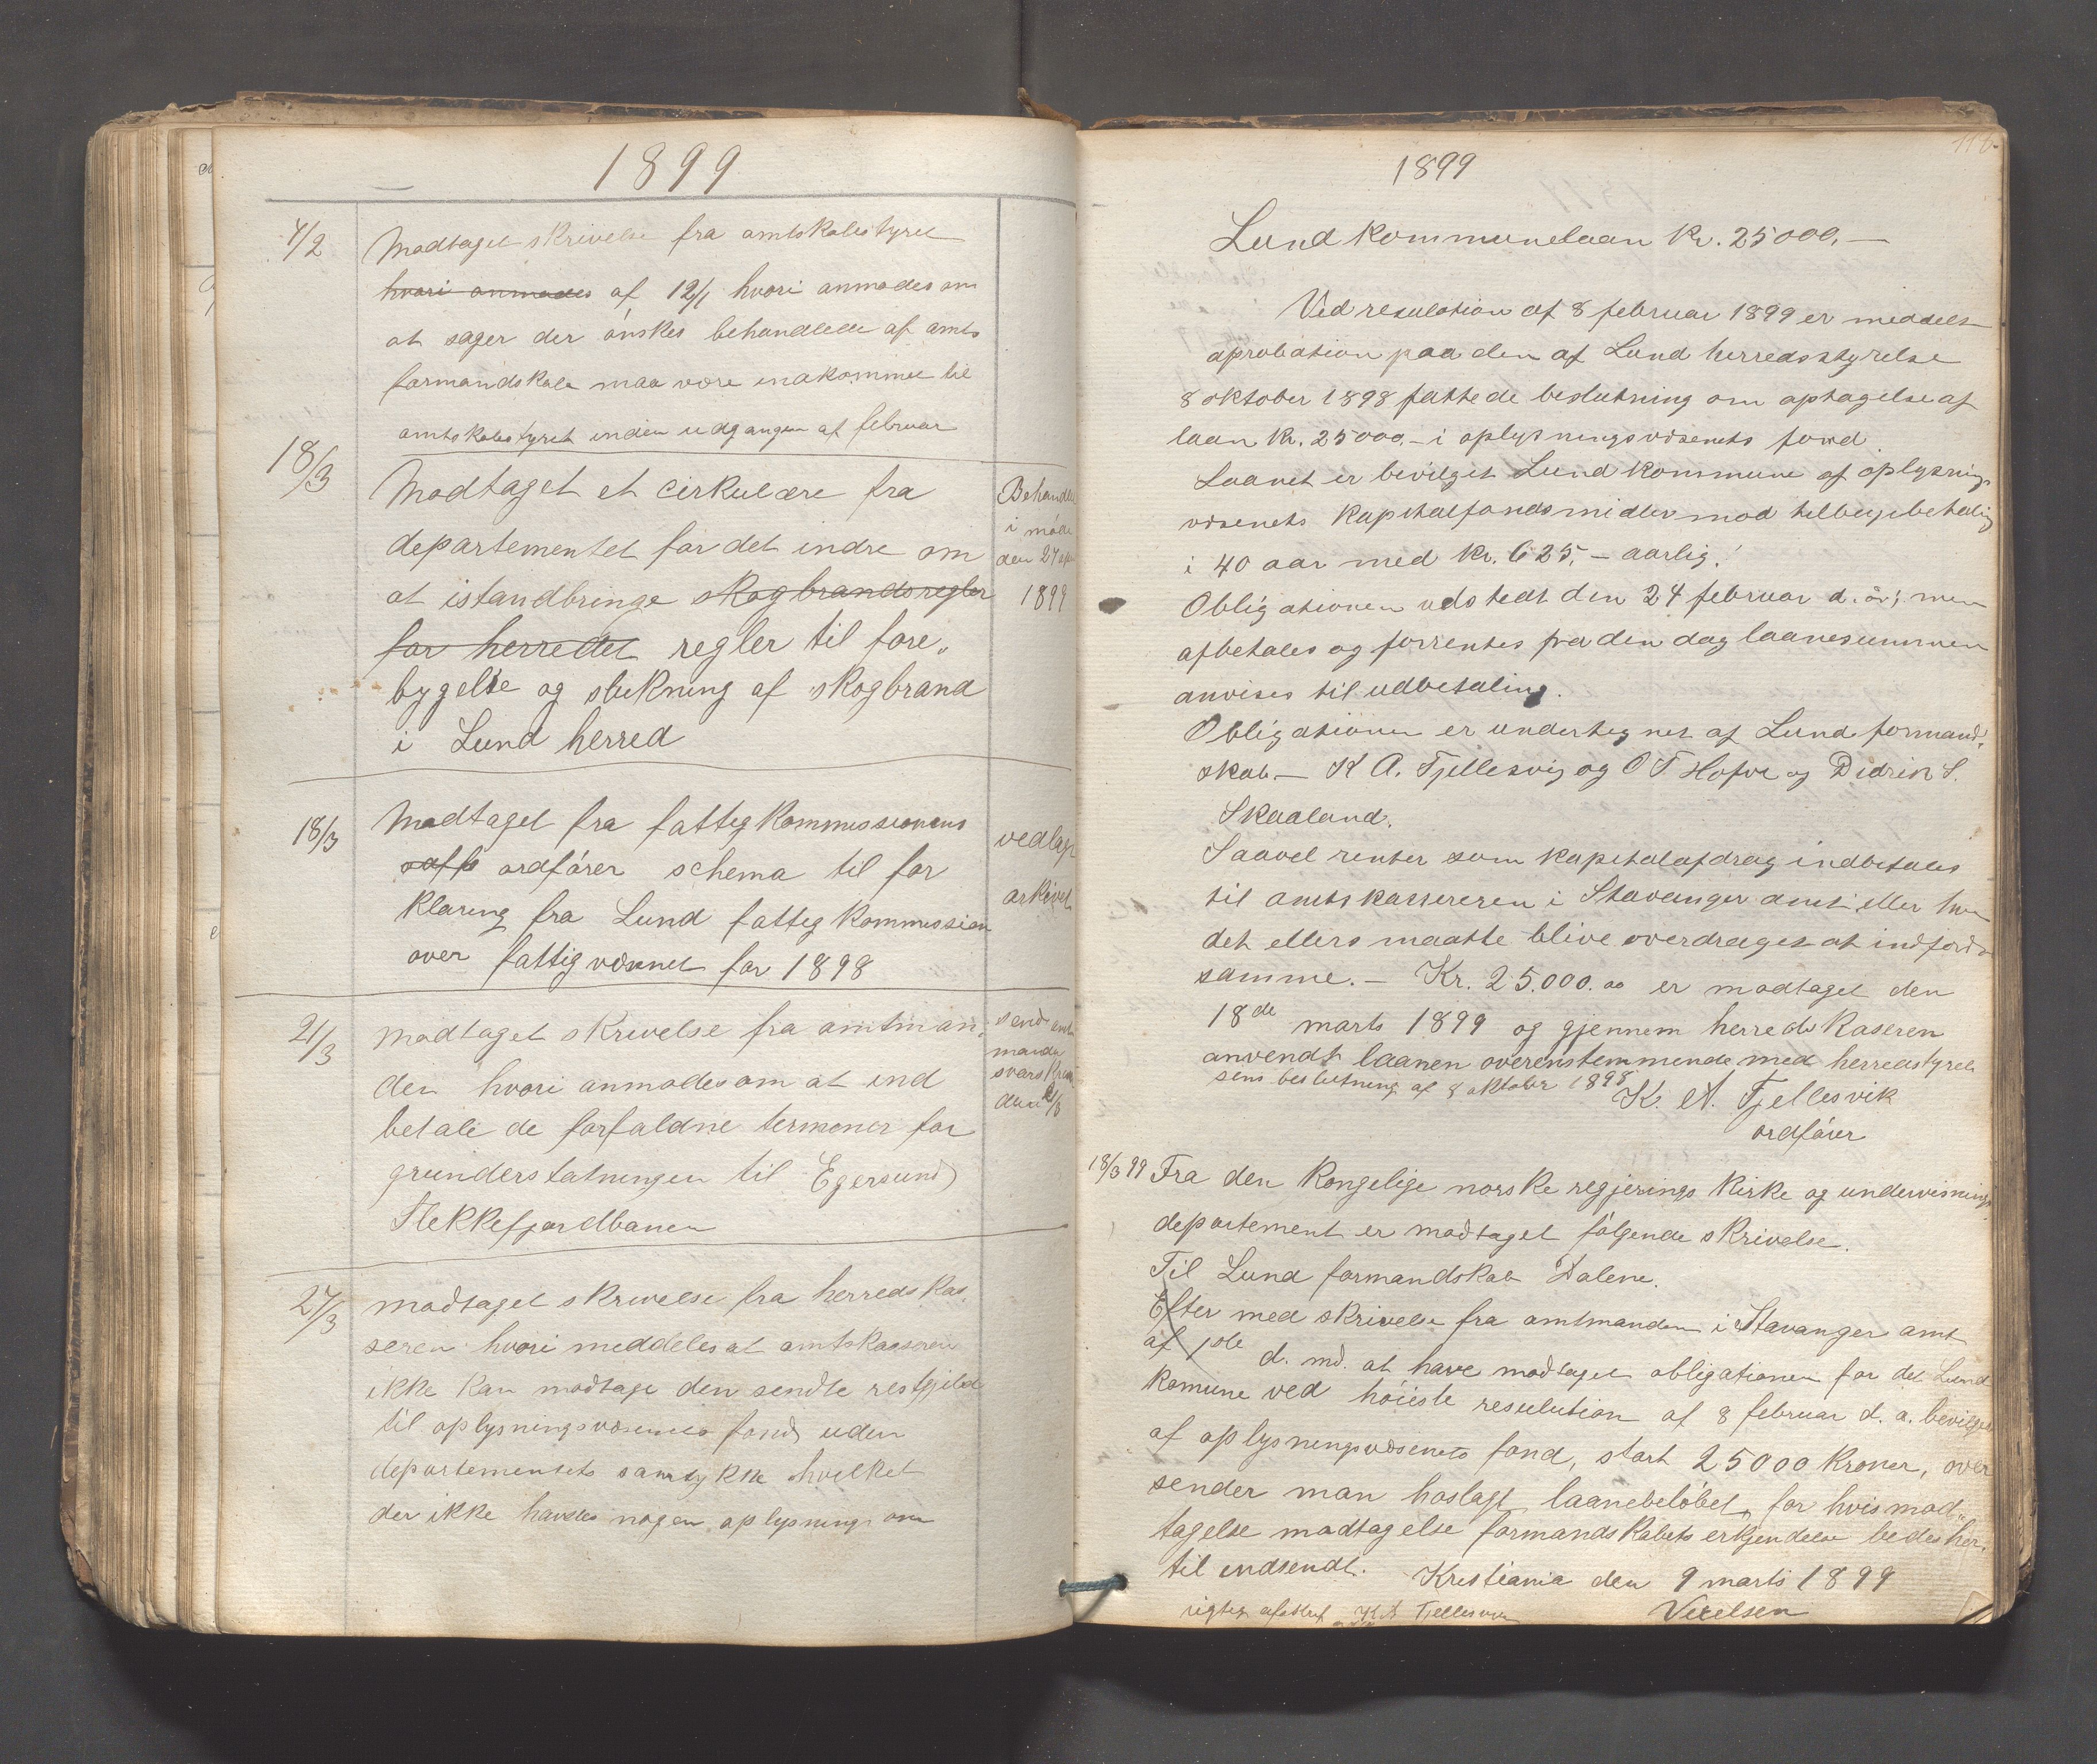 1899
4/2
Modtaget skrivelse fra amtskolestyret
hvori anmodes af 12/1 hvori anmodes om
at sager der ónskes behandlede af amts
formandskab maa være indkommet til
amtskolestyret inden udgangen af februar
18/3
Modtaget et cirkulære fra
departementet for det indre om
at istandbringe skogbrandsregler
for herredet regler til fore„
bygelse og slukning af skogbrand
i Lund herred
Behandlet
i móde
den 27
1899
18/3
Modtaget fra fattigkommissionens
ordfórer schema til for
klaring fra Lund fattigkommission
over fattigvæsnet for 1898
vedlagt
arkivet
21/3
Modtaget skrivelse fra amtman„
den hvori anmodes om at ind
betale de forfaldne terminer for
grunderstatningen til Egersund
Flekkefjordbanen
send amt
manden
27/3
modtaget skrivelse fra herredskas„
seren hvori meddeles at amtskasseren
ikke kan modtage den sendte restgjeld
til oplysningsvæsenets fond uden
departementets samtykke hvilket
der ikke havdes nogen oplysning om
1899
Lund kommunelaan kr. 25000.—
Ved resulation af 8 februar 1899 er meddelt
aprobation paa den af Lund herredsstyrelse
8 oktober 1898 fattede beslutning om optagelse af
laan kr. 25000.– i oplysningsvæsenets fond
Laanet er bevilget Lund kommune af oplysnings
væsenets kapitalfondsmidler mod tilbagebetaling
i 40 aar med kr. 625,– aarlig.
Obligationen udstedt den 24 februar d. år; men
afbetales og forrentes fra den dag laanesummen
anvises til udbetaling.
Obligationen er undertegnet af Lund formand„
skab – K A. Tjellesvig og O T Hofve og Didrik S.
Skaaland.
Saavel renter som kapitalafdrag indbetales
til amtskassereren i Stavanger amt eller hvem
det ellers maatte blive overdraget at indfordre
samme. – Kr. 25.000.00 er modtaget den
18de marts 1899 og gjennem herredskaseren
anvendt laanen overenstemmende med herredstyrel
sens beslutning af 8 oktober 1898
K. A. Tjellesvik
ordfórer
18/3 99 Fra den kongelige norske regjerings kirke og undervisnings
departement er modtaget fólgende skrivelse.
Til Lund formandskab Dalene.
Efter med skrivelse fra amtmanden i Stavanger amt
af 1ste d. md. at have modtaget obligationen for det Lund
komune ved hóieste resulution af 8 februar d. a. bevilget
af oplysningsvæsenets fond, stort 25000 kroner, over
sender man hoslagt laanebelóbet, for hvis mod„
tagelse modtagelse formandskabets erkjendelse bedes her„
til indsendt.
Kristiania den 9 marts 1899
rigtig afskrift K A Tjellesvik